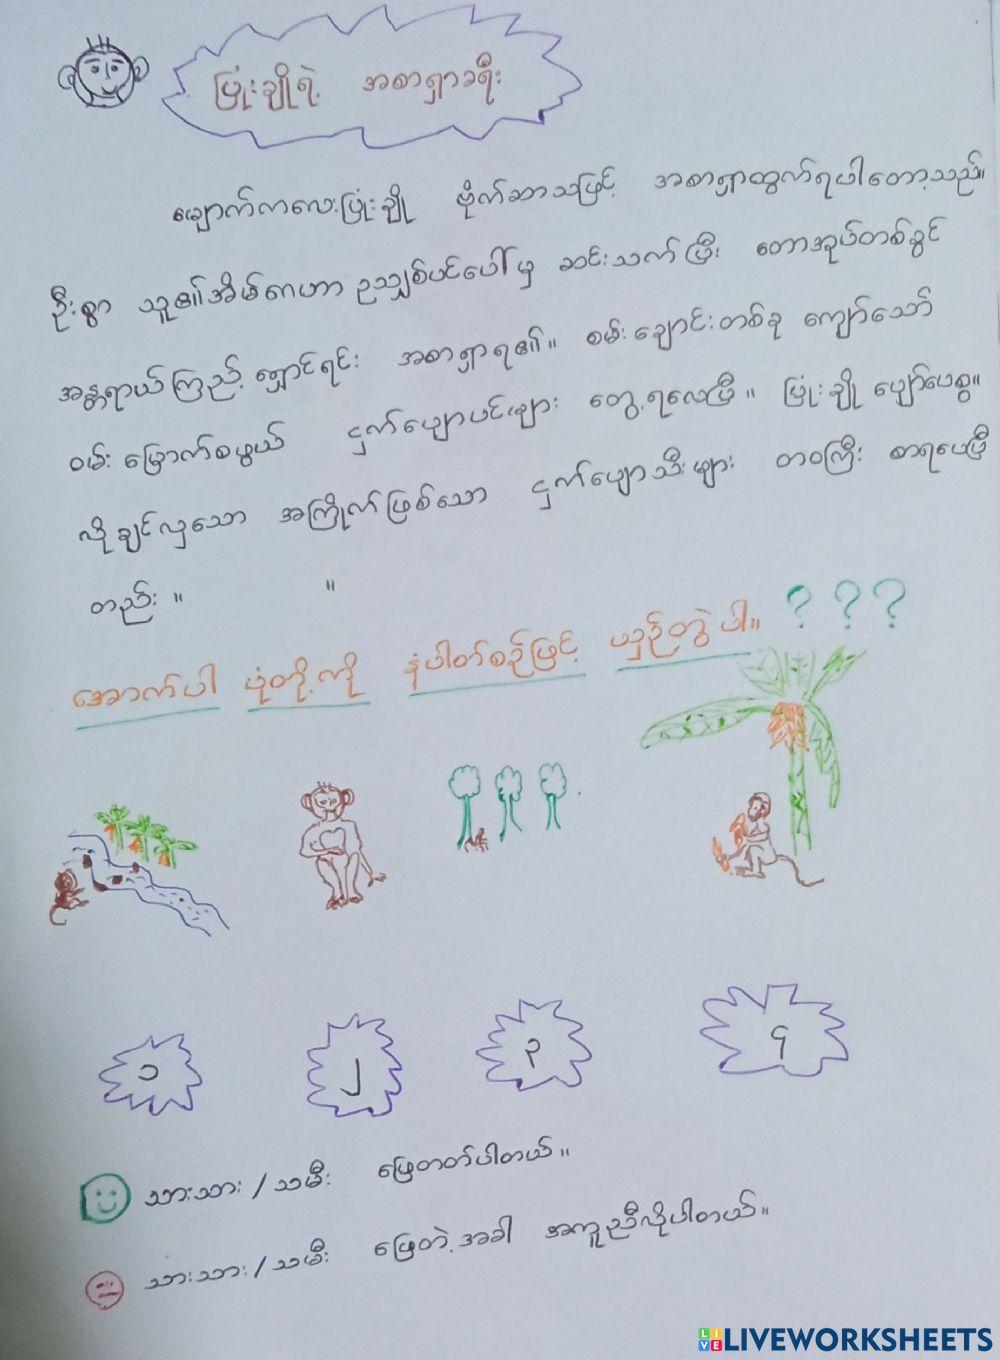 ဖြုံးချိုရဲ့ အစာရှာခရီး
မျောက်ကလေးဖြုံးချို ဗိုက်ဆာသဖြင့် အစာရှာထွက်ရပါတော့သည်။
ဦးစွာ သူ၏အိမ်ဂေဟာ ဥသျှစ်ပင်ပေါ်မှ ဆင်းသက်ပြီး တောအုပ်တစ်ခွင်
အန္တရာယ်ကြည့်ရှောင်ရင်း အစာရှာရ၏။ စမ်းချောင်းတစ်ခု ကျော်သော်
ဝမ်းမြောက်စဖွယ် ငှက်ပျောပင်များ တွေ့ရလေပြီ။ ဖြုံးချို ပျော်ပေစွ။
လိုချင်လှသော အကြိုက်ဖြစ်သော ငှက်ပျောသီးများ တဝကြီး စားရပေပြီ
တည်း ။ ။
အောက်ပါ ပုံတို့ကို နံပါတ်စဉ်ဖြင့် ယှဉ်တွဲပါ။ ? ? ?
၁ ၂ ၃ ၄
သားသား / သမီး ဖြေတတ်ပါတယ်။
သားသား / သမီး ဖြေတဲ့အခါ အကူညီလိုပါတယ်။
LIVEWORKSHEETS